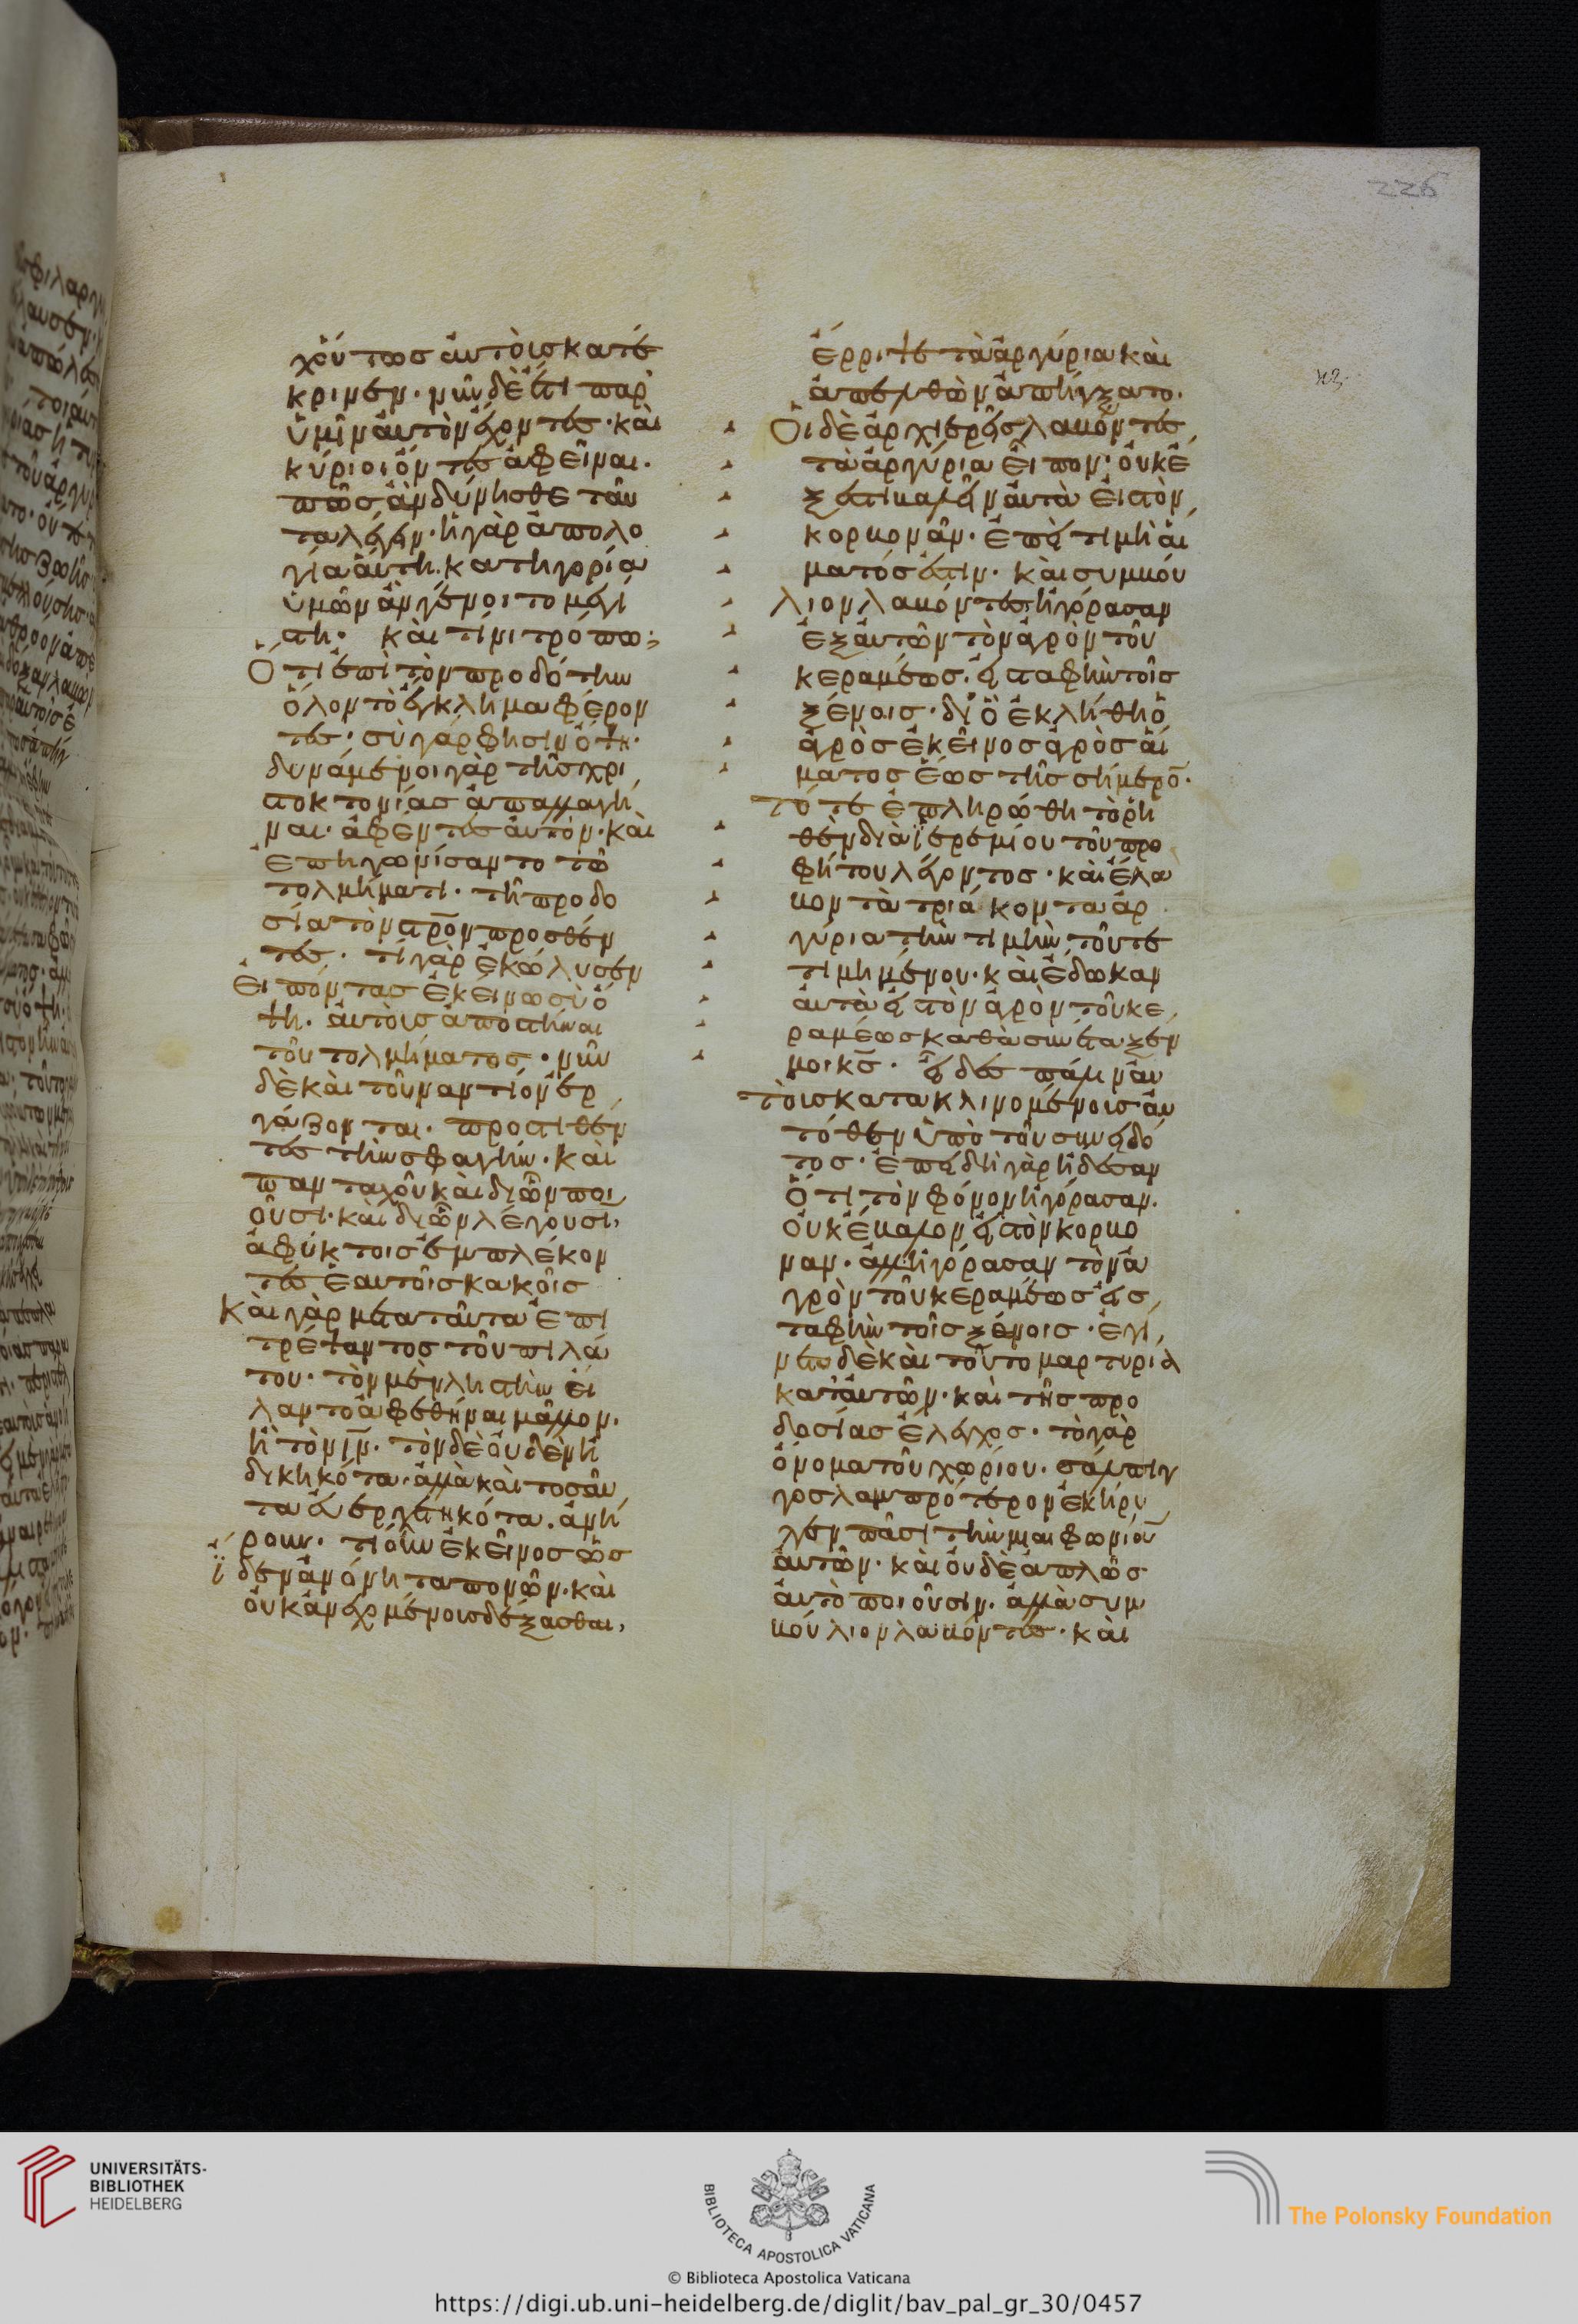 225
χόντωσ ἀυτὸισ κατέ
κρινεν· νῦν δὲ ἔτι παρ'
ὑμῖν ἀυτὸν ἔχοντεσ· καὶ
κύριοι ὄντεσ ἀφεῖναι·
πῶσ ἂν δύνησθε ταῦ
τα λέγειν· ἡ γὰρ ἀπολο
γία ἀύτη· κατηγορία
ὑμῶν ἂν γένοιτο μεγί
στη· καὶ τίνι τρόπω·
Ὅτι ἐπὶ τὸν προδότην
ὅλον τὸ ἔγκλημα φέρον
τεσ· σὺ γὰρ φησιν ὄψη·
δυνάμενοι γὰρ τῆσ χρι
στοκτονίασ ἀπαλλαγῆ
ναι· ἀφέντεσ ἀυτόν· καὶ
ἐπηγωνίσαντο τῶ
τολμήματι· τῆ προδο
σία τὸν σταυρὸν προσθέν
τεσ· τί γὰρ ἐκώλυσεν
ἐιπόντασ ἐκείνω σὺ ὄ
ψη· ἀυτὸισ ἀποστῆναι
τοῦ τολμήματοσ· νῦν
δὲ καὶ τουναντίον ἐρ
γάζονται· προστιθέν
τεσ τὴν σφαγήν· καὶ
πανταχοῦ καὶ δι' ὧν ποι
οῦσι· καὶ δι' ὧν λέγουσιν
ἀφύκτοισ ἐμπλέκον
τεσ ἑαυτοῖσ κακοῖσ
Καὶ γὰρ μετὰ ταῦτα ἐπι
τρέψαντοσ τοῦ πιλά
του· τὸν μὲν ληστὴν εἵ
λαντο ἀφεθῆναι μᾶλλον·
ἢ τὸν ιν· τὸν δὲ οὐδὲν ἠ
δικηκότα· ἀλλὰ καὶ τοσαῦ
τα ἐυεργετηκότα· ἀνή
ρουν· τί οὖν ἐκεῖνοσ ὡσ
ἴδεν ἀνόνητα πονῶν· καὶ
οὐκ ἀνεχομένουσ δέξασθαι
ἔρριψε τὰ ἀργύρια καὶ
ἀπελθὼν ἀπήγξατο·
Οἱ δὲ ἀρχιερεῖσ λαβόντεσ
τὰ ἀργύρια εἶπον· οὐκ ἔ
ξεστι βαλεῖν ἀυτὰ εἰσ τὸν
κορβονᾶν· ἐπεὶ τιμὴ αἵ
ματόσ ἐστιν· καὶ συμβού
λιον λαβόντεσ· ἠγόρασαν
ἐξ ἀυτῶν τὸν ἀγρὸν τοῦ
κεραμέωσ· εἰσ ταφὴν τοῖσ
ξένοισ· διὸ ἐκλήθη ὁ
ἀγρὸσ ἐκεῖνοσ ἀγρὸσ αἵ
ματοσ ἕωσ τῆσ σήμερον·
τότε ἐπληρώθη τὸ ῥη
θὲν διὰ ἰερεμίου τοῦ προ
φήτου λέγοντοσ· καὶ ἔλα
βον τὰ τριάκοντα ἀρ
γύρια τὴν τιμὴν τοῦ τε
τιμημένου· καὶ ἔδωκαν
ἀυτὰ εἰσ τὸν ἀγρὸν τοῦ κε
ραμέωσ καθὰ συνέταξέν
μοι κσ· εἶδεσ πάλιν ἀυ
τοὺσ κατακρινομένουσ ἀυ
τόθεν ὑπὸ τοῦ συνειδό
τοσ· ἐπειδὴ γὰρ ἤδεσαν
ὅτι τὸν φόνον ἠγόρασαν·
οὐκ ἔβαλον εἰσ τὸν κορβο
ναν· ἀλλ' ἠγόρασαν τὸν ἀ
γρὸν τοῦ κεραμέωσ εἰσ
ταφὴν τοῖσ ξένοισ· ἐγί
νετο δὲ καὶ τοῦτο μαρτυρία
κατ' ἀυτῶν· καὶ τῆσ προ
δοσίασ ἔλεγχοσ· τὸ γὰρ
ὄνομα τοῦ χωρίου· σάλπιγ
γοσ λαμπρότερον ἐκήρυτ
τεν πᾶσι τὴν μιαιφονίαν
ἀυτῶν· καὶ οὐδὲ ἁπλῶσ
ἀυτὸ ποιοῦσιν· ἀλλὰ συμ
βούλιον λαβόντεσ· καὶ
UNIVERSITÄTS-
BIBLIOTHEK
HEIDELBERG
BIBLIOTECA APOSTOLICA VATICANA
© Biblioteca Apostolica Vaticana
The Polonsky Foundation
https://digi.ub.uni-heidelberg.de/diglit/bav_pal_gr_30/0457